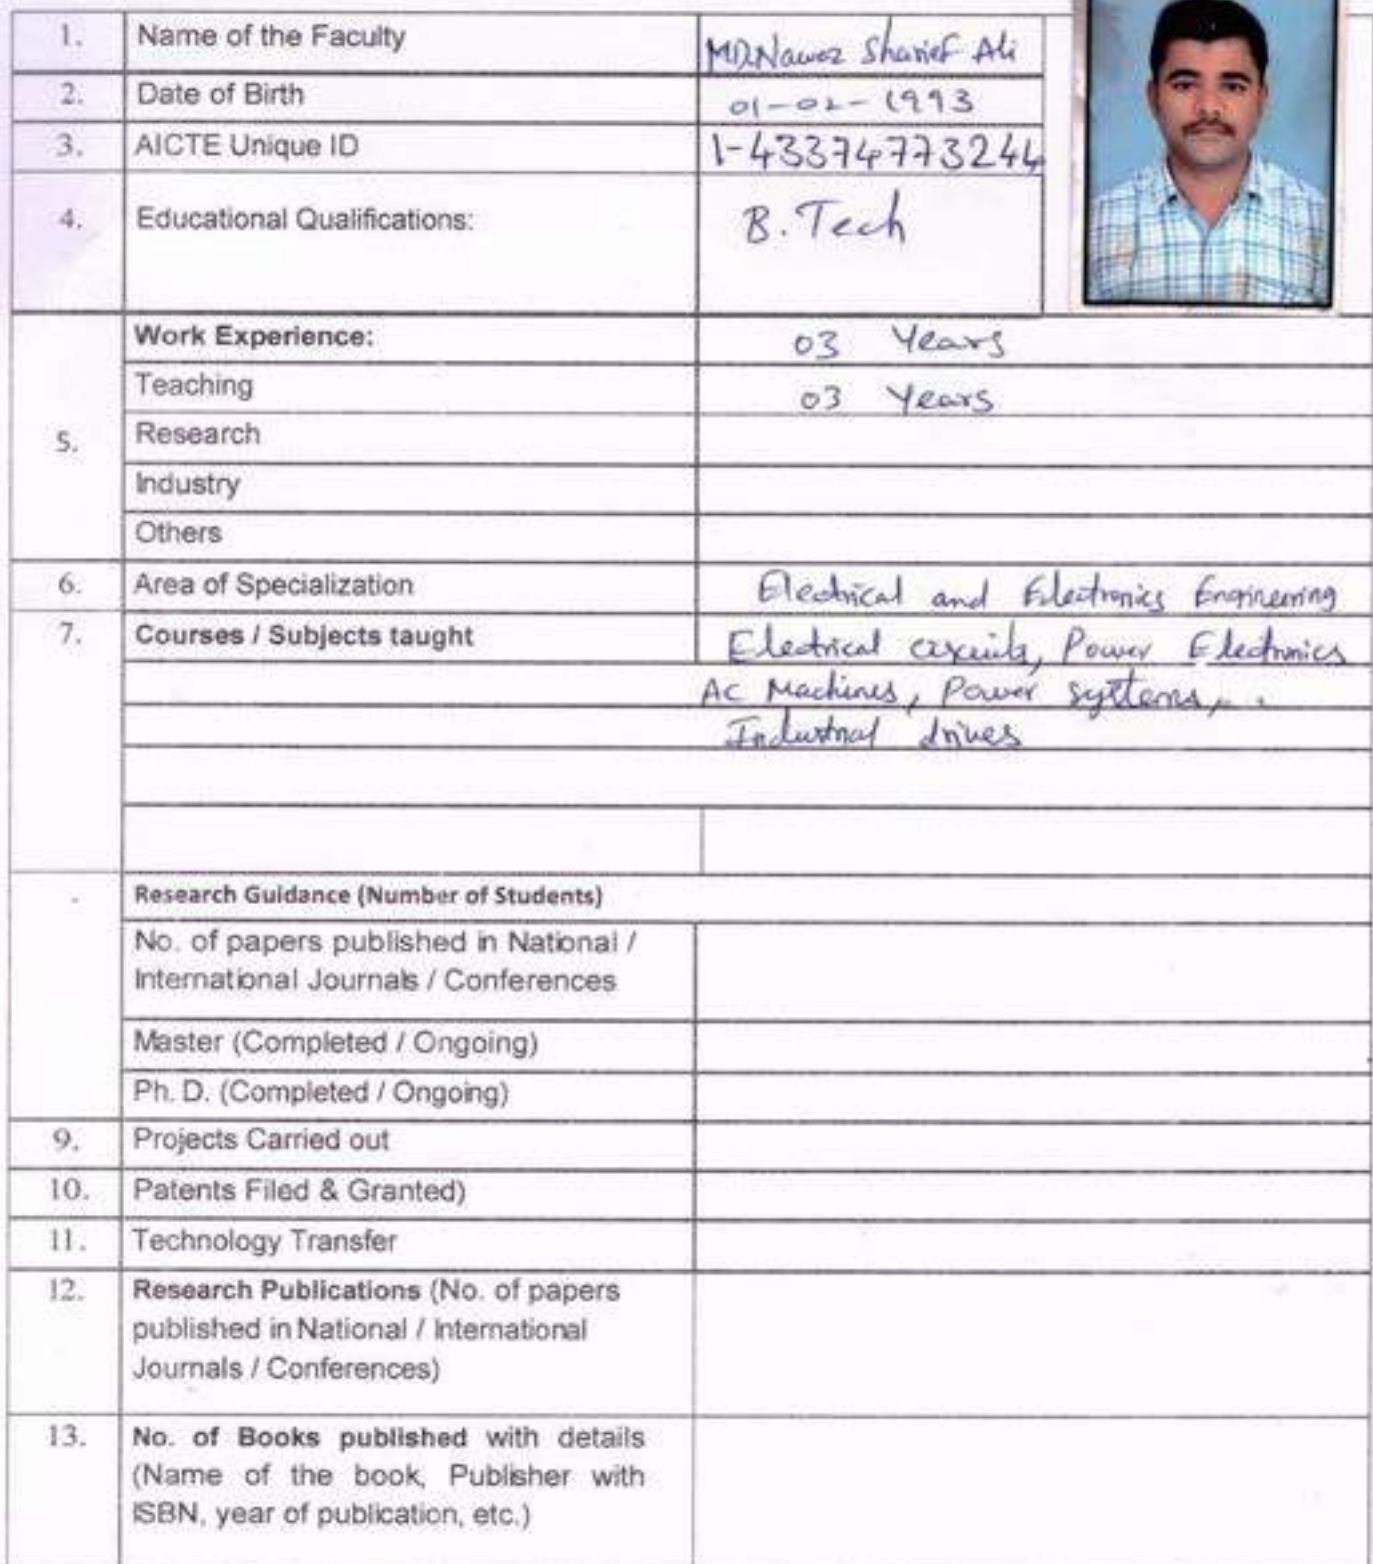 1. Name of the Faculty MD.Nawaz Sharief Ali
2. Date of Birth 01-02-1993
3. AICTE Unique ID 1-43374773244
4. Educational Qualifications: B.Tech
Work Experience: 03 Years
Teaching 03 Years
5. Research
Industry
Others
6. Area of Specialization Electrical and Electronics Engineering
7. Courses / Subjects taught Electrical circuits, Power Electronics
AC Machines, Power systems,
Industrial drives
Research Guidance (Number of Students)
No. of papers published in National /
International Journals / Conferences
Master (Completed / Ongoing)
Ph. D. (Completed / Ongoing)
9. Projects Carried out
10. Patents Filed & Granted)
11. Technology Transfer
12. Research Publications (No. of papers
published in National / International
Journals / Conferences)
13. No. of Books published with details
(Name of the book, Publisher with
ISBN, year of publication, etc.)